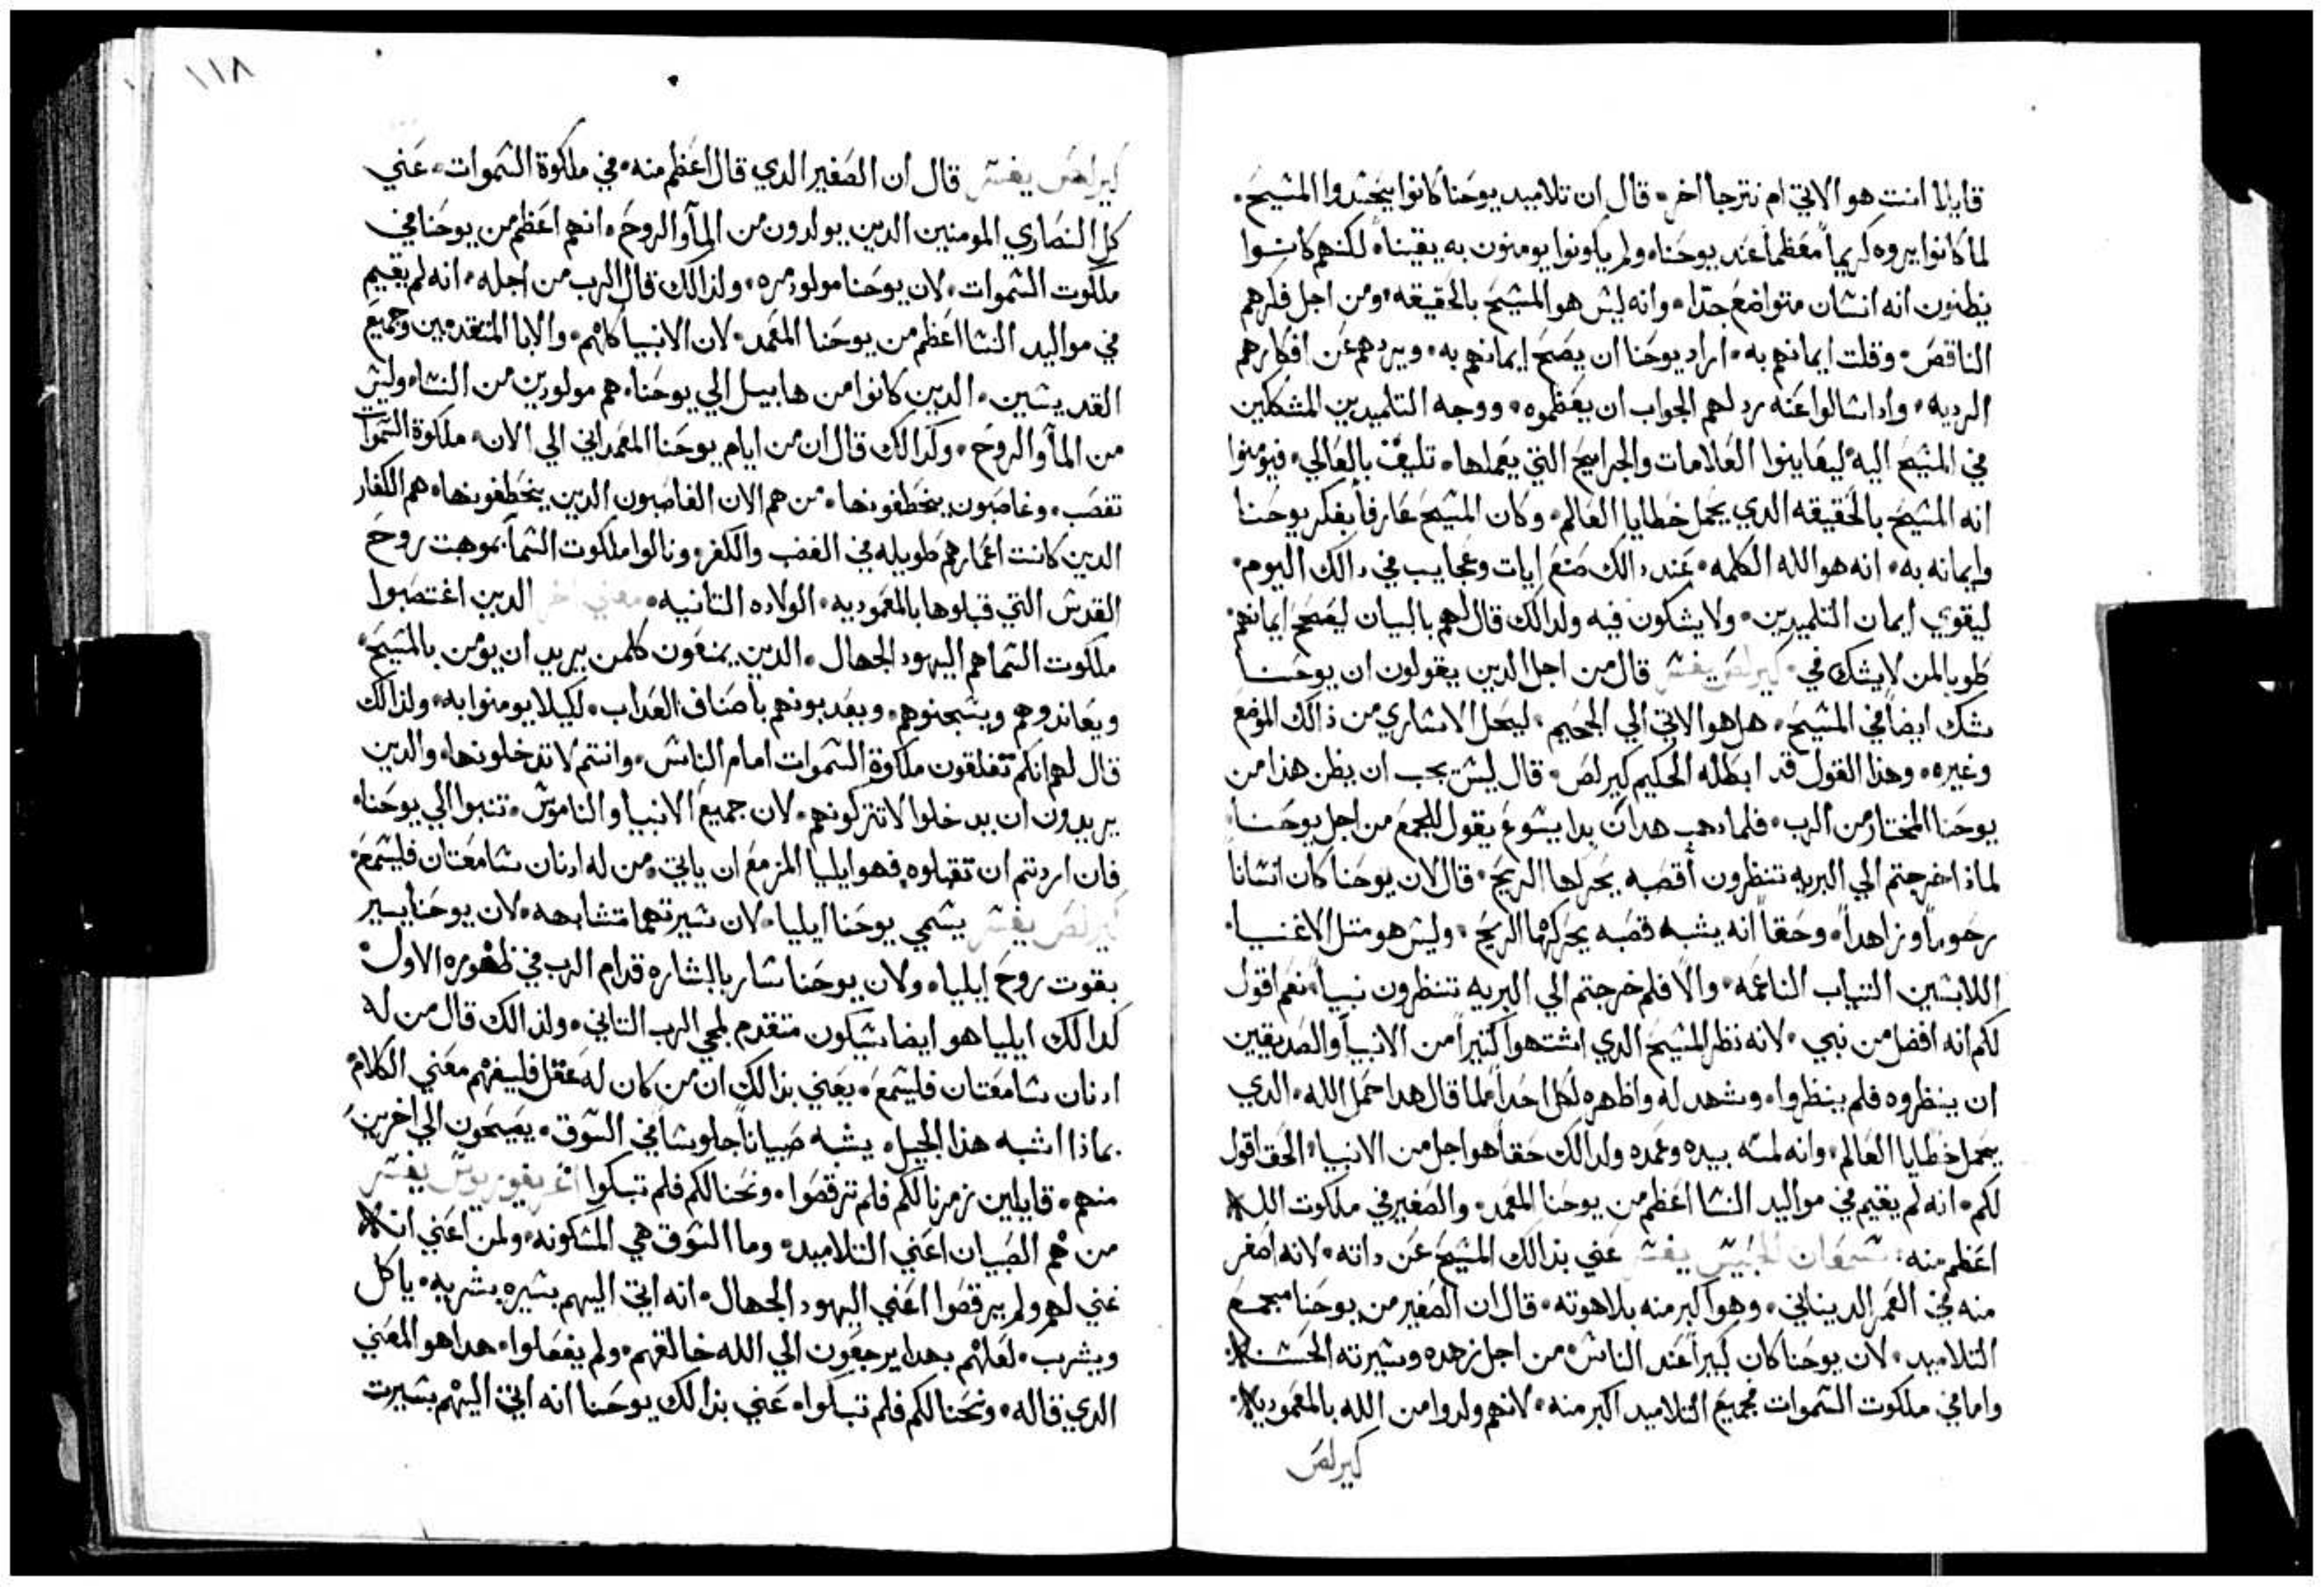 قايلا انت هو الاتي ام نترجا اخر. قال ان تلاميد يوحنا كانوا يحسدوا المسيح.
لما كانوا يروه كريماً معظماً عند يوحنا. ولم يكونوا يومنون به يقينا. لكنهم كانوا
يظنون انه انسان متواضع جدا. وانه ليس هو المسيح بالحقيقه. ومن اجل فكرهم
الناقص. وقلت ايمانهم به. اراد يوحنا ان يصح ايمانهم به. ويردهم عن افكارهم
الرديه. وادا سالوا عنه رد لهم الجواب ان يعظموه. ووجه التلميدين المشككين
في المسيح اليه ليعاينوا العلامات والجرايح التي يعملها. تليق بالعالي. فيومنوا
انه المسيح بالحقيقه الدي يحمل خطايا العالم. وكان المسيح عارفاً بفكر يوحنا
وايمانه به. انه هو الله الكلمه. عند دالك صنع ايات وعجايب في دالك اليوم.
ليقوي ايمان التلميدين. ولا يشكون فيه ولدالك قال لهم بالبيان ليصح ايمانهم.
طوبا لمن لا يشك في. كيرلص يفسر قال من اجل الدين يقولون ان يوحنا
شك ايضاً في المسيح. هل هو الاتي الي الجحيم. ليحل الاساري من ذالك الموضع
وغيره. وهذا القول قد ابطله الحكيم كيرلص. قال ليس يجب ان يظن هذا من
يوحنا المختار من الرب. فلما دهب هدان بدا يسوع يقول للجمع من اجل يوحنا.
لماذا خرجتم الي البريه تنظرون أقصبه يحركها الريح. قال لان يوحنا كان انساناً
رحوماً وزاهداً. وحقاً انه يشبه قصبه يحركهما الريح. وليس هو متل الاغنيا.
اللابسين التياب الناعمه. والا فلم خرجتم الي البريه تنظرون نبياً. نعم اقول
لكم انه افضل من نبي. لانه نظر المسيح الدي اشتهوا كتيراً من الانبيا والصديقين
ان ينظروه فلم ينظروا. وشهد له واظهره لكل احداً لما قال هدا حمل الله. الدي
يحمل خطايا العالم. وانه لمسه بيده وعمده ولدالك حقاً هو اجل من الانبيا. الحق اقول
لكم. انه لم يقيم في مواليد النسا اعظم من يوحنا المعمد. والصغير في ملكوت الله
اعظم منه: سمعان الحبيس يفسر عني بذالك المسيح عن داته. لانه اصغر
منه في العمر الديناني. وهو اكبر منه بلاهوته. قال ان الصغير من يوحنا مجمع
التلاميد. لان يوحنا كان كبيراً عند الناس. من اجل زهده وسيرته الحسنه.
واما في ملكوت السموات فجميع التلاميد اكبر منه. لانهم ولدوا من الله بالمعموديه.
كيرلص
١١٨
كيرلص يفسر قال ان الصغير الدي قال اعظم منه. في ملكوة السموات. عني
كل النصاري المومنين الدين يولدون من المآ والروح. انهم اعظم من يوحنا في
ملكوت السموات. لان يوحنا مولود مره. ولذالك قال الرب من اجله. انه لم يقيم
في مواليد النسا اعظم من يوحنا المعمد. لان الانبيا كلهم. والابا المتقدمين وجميع
القديسين. الدين كانوا من هابيل الي يوحنا. هم مولودين من النسا. وليس
من المآ والروح. وكدالك قال ان من ايام يوحنا المعمداني الي الان. ملكوة السموات
تغصب. وغاصبون يخطفونها. من هم الان الغاصبون الدين يخطفونها. هم الكفار
الدين كانت اعمارهم طويله في الغضب والكفر. ونالوا ملكوت السمآ بموهبت روح
القدس التي قبلوها بالمعموديه. الولاده التانيه. معني اخر الدين اغتصبوا
ملكوت السما هم اليهود الجهال. الدين يمنعون كلمن يريد ان يومن بالمسيح.
ويعاندوهم ويسجنوهم. ويعدبونهم باصناف العداب. لكيلا يومنوا به. ولذالك
قال لهم انكم تغلقون ملكوة السموات امام الناس. وانتم لا تدخلونها. والدين
يريدون ان يدخلوا لا تتركونهم. لان جميع الانبيا والناموس. تنبوا الي يوحنا.
فان اردتم ان تقبلوه فهو ايليا المزمع ان ياتي. من له ادنان سامعتان فليسمع.
كيرلص يفسر يسمي يوحنا ايليا. لان سيرتهما متشابهه. لان يوحنا يسير
بقوت روح ايليا. ولان يوحنا سار بالبشاره قدام الرب في ظهوره الاول.
كدالك ايليا هو ايضا سيكون متقدم لمجي الرب التاني. ولذالك قال من له
ادنان سامعتان فليسمع. يعني بذالك ان من كان له عقل فليفهم معني الكلام.
بماذا اشبه هذا الجيل. يشبه صبياناً جلوساً في السوق. يصيحون الي اخرين
منهم. قايلين زمرنا لكم فلم ترقصوا. ونحنا لكم فلم تبكوا اغريغوريوس يفسر
من هم الصبيان اعني التلاميد. وما السوق هي المسكونه. ولمن اعني انه
غني لهم ولم يرقصوا اعني اليهود الجهال. انه اتي اليهم بسيره بشريه. ياكل
ويشرب. لعلهم بهدا يرجعون الي الله خالقهم. ولم يفعلوا. هدا هو المعني
الدي قاله. ونحنا لكم فلم تبكوا. عني بذالك يوحنا انه اتي اليهم بسيرت